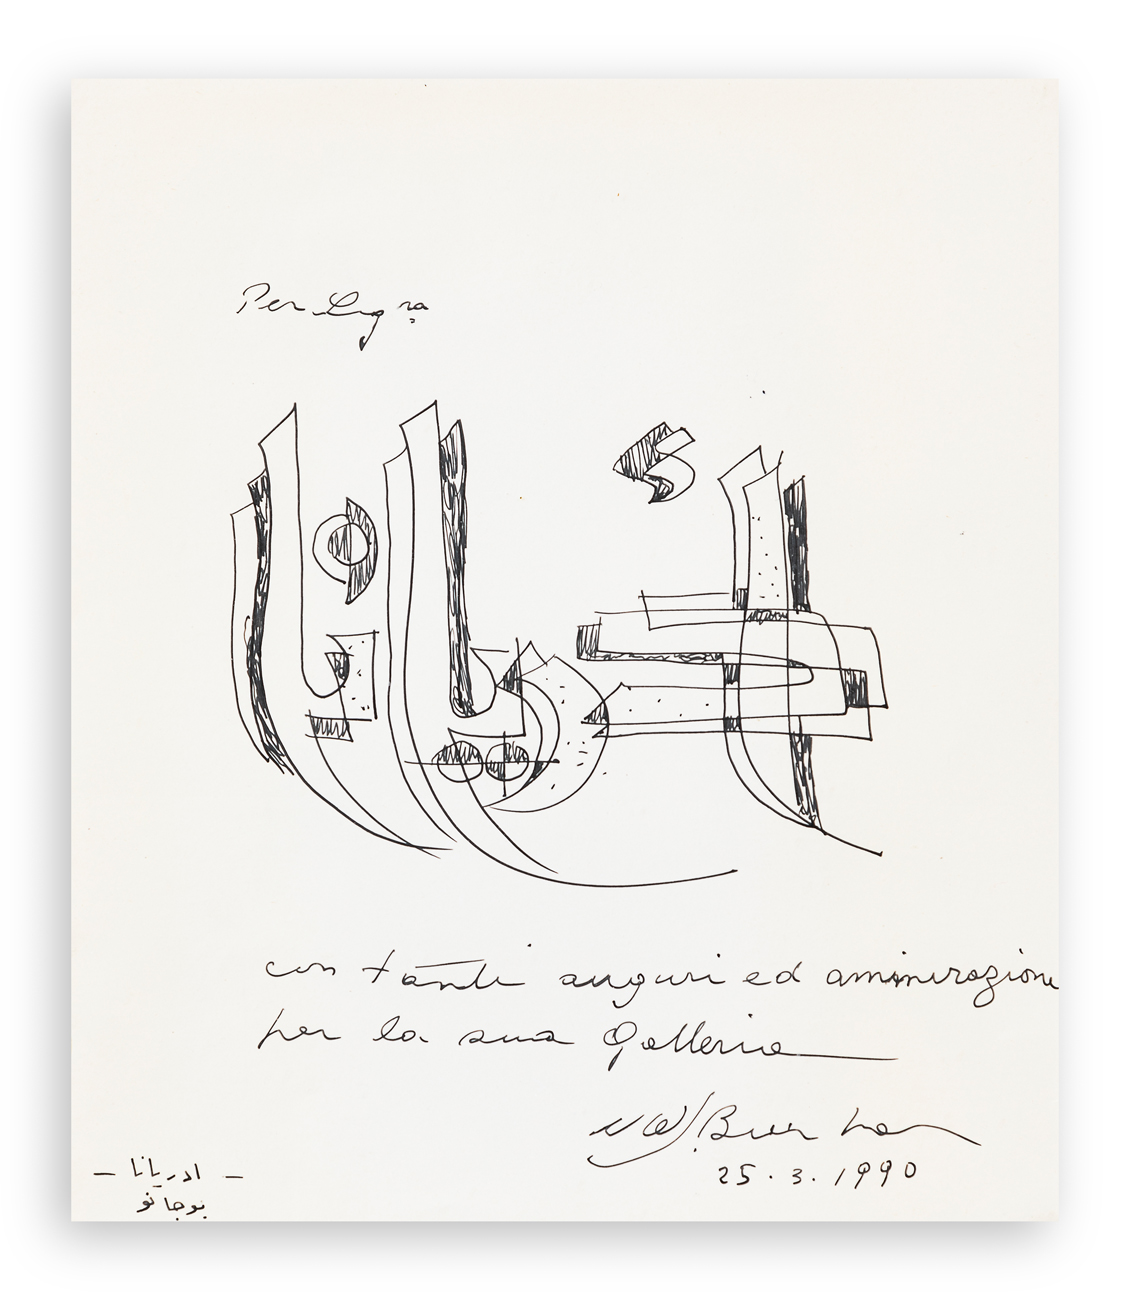 Per Sig.ra
con tanti auguri ed amimirazione
per la sua Galleria
25.3.1990
— ادريانا —
بوجانو